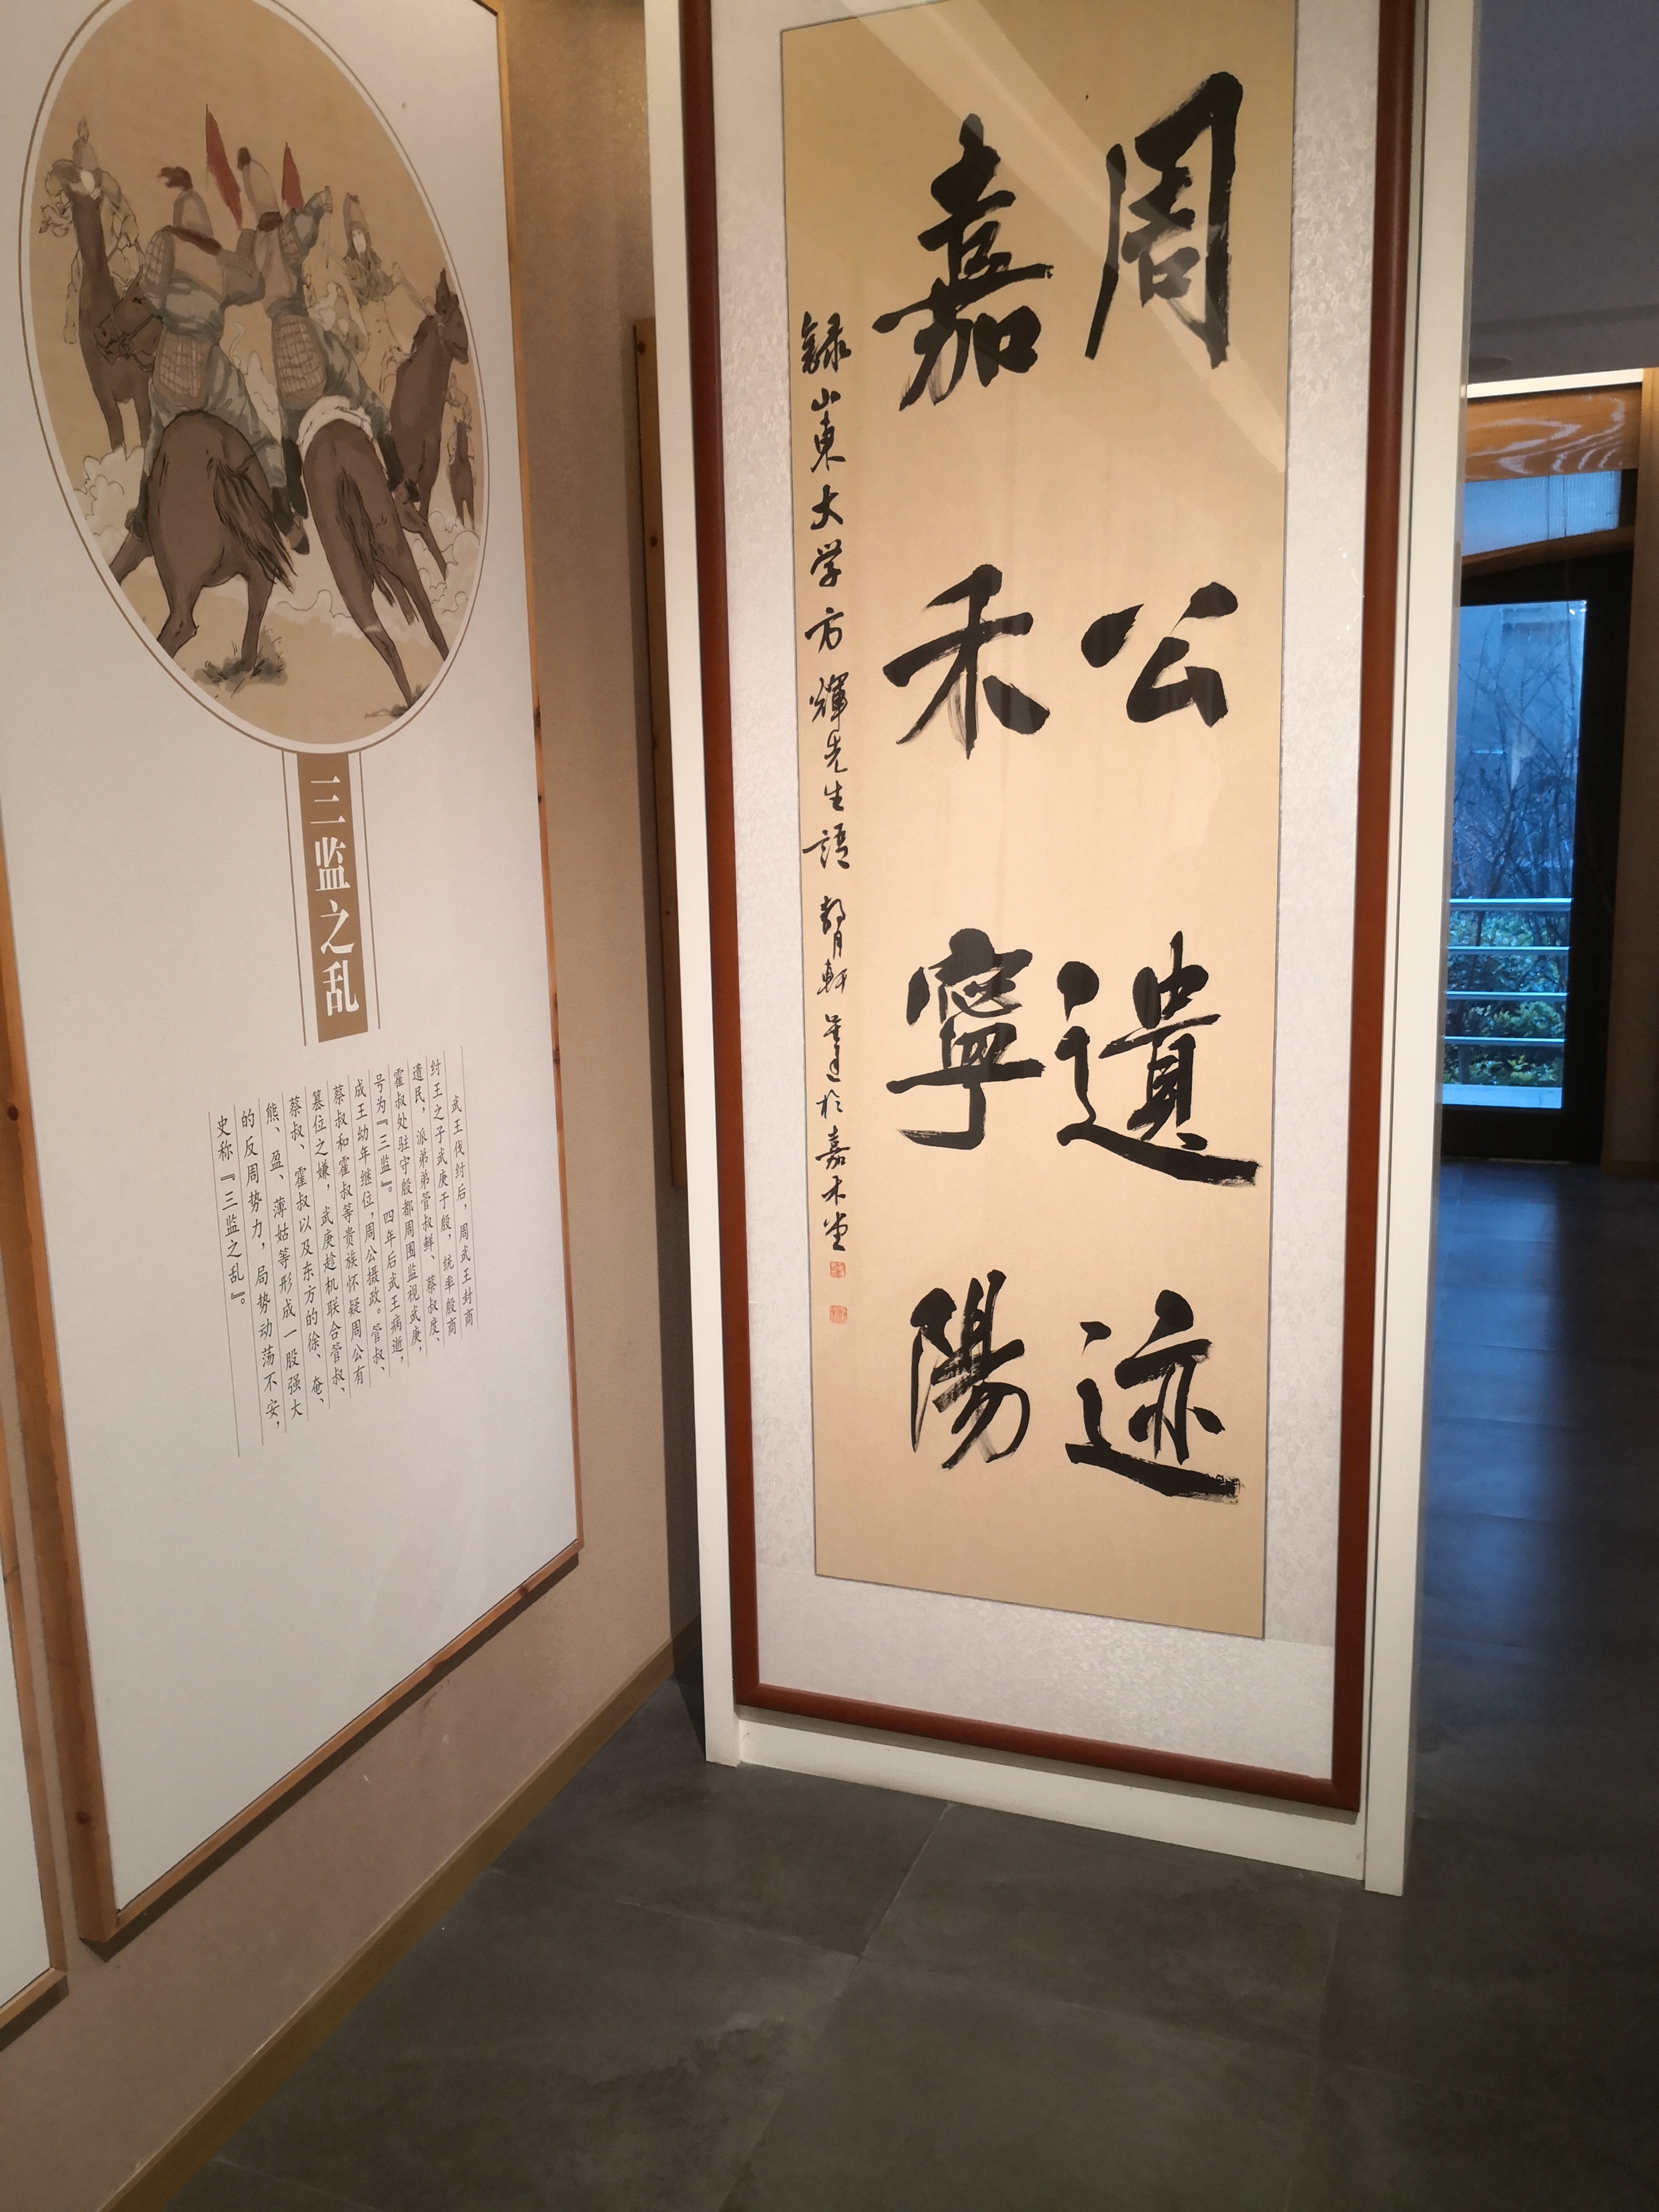 周公遺迹
嘉禾寧陽
録山東大学方輝先生語 軒 於嘉禾堂
三监之乱
武王伐纣后，周武王封商
纣王之子武庚于殷，统率殷商
遗民，派弟弟管叔鲜、蔡叔度、
霍叔处驻守殷都周围监视武庚，
号为『三监』。四年后武王病逝，
成王幼年继位，周公摄政。管叔、
蔡叔和霍叔等贵族怀疑周公有
篡位之嫌，武庚趁机联合管叔、
蔡叔、霍叔以及东方的徐、奄、
熊、盈、薄姑等形成一股强大
的反周势力，局势动荡不安，
史称『三监之乱』。